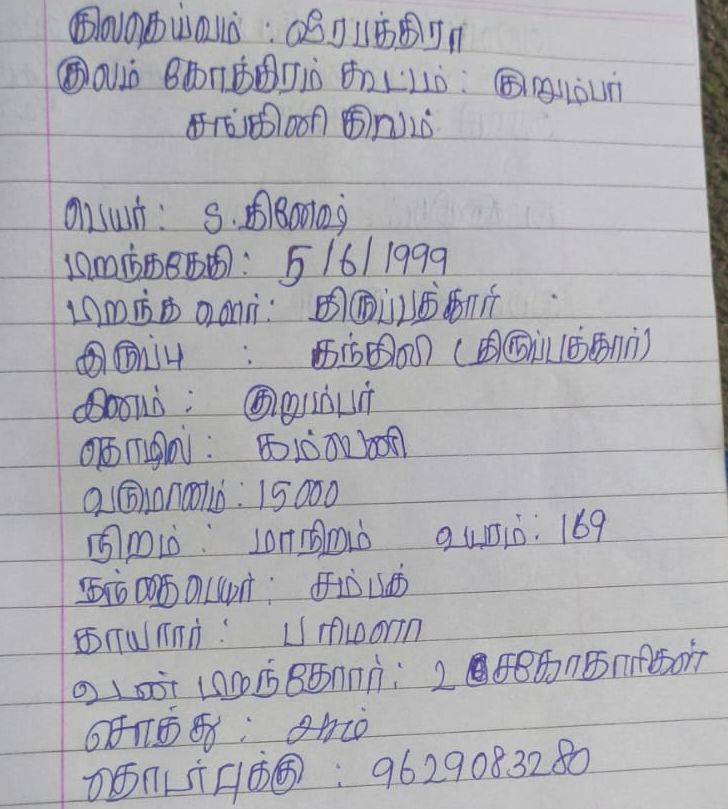 குலதெய்வம் : வீரபத்திரா
குலம் கோத்திரம் கூட்டம் : குறும்பர்
சங்கினி குலம்
பெயர் : S. தினேஷ்
பிறந்ததேதி : 5/6/1999
பிறந்த ஊர் : திருப்பத்தூர்
இருப்பு : கந்திலி (திருப்பத்தூர்)
இனம் : குறும்பர்
தொழில் : கம்பெனி
வருமானம் : 15000
நிறம் : மாநிறம் உயரம் : 169
தந்தை பெயர் : சம்பத்
தாயார் : பரிமளா
உடன் பிறந்தோர் : 2 சகோதரிகள்
சொத்து :
தொடர்புக்கு : 9629083280